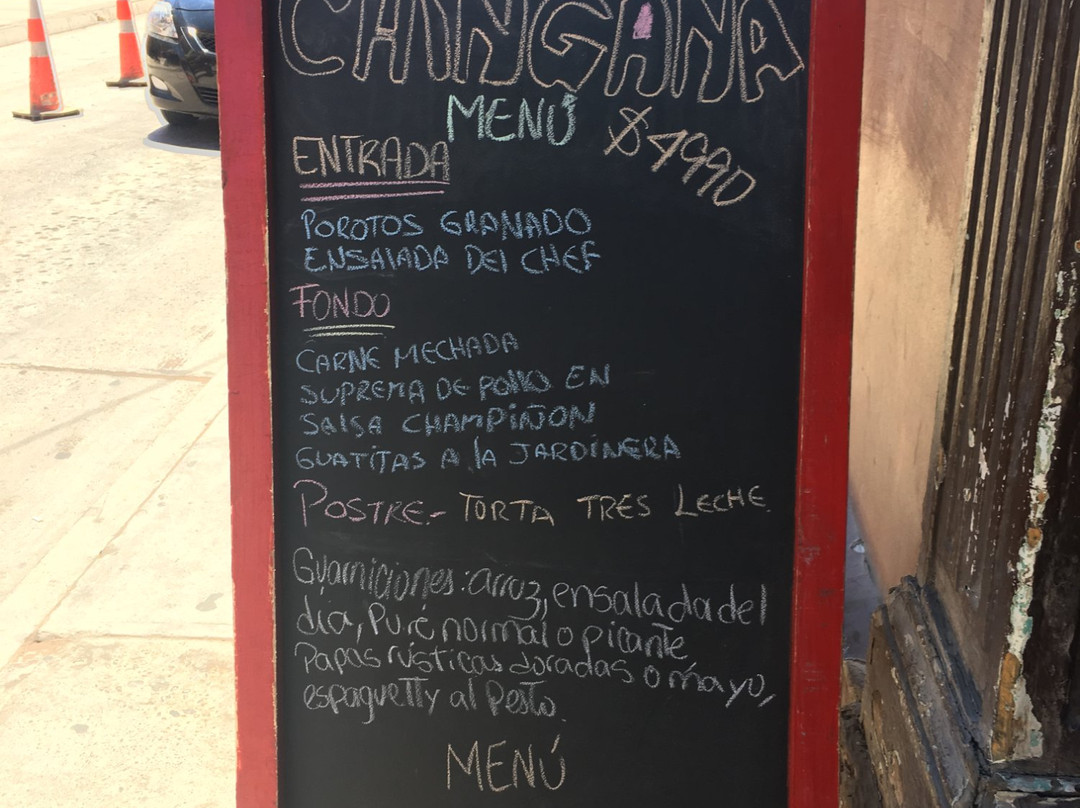 CHINGANA
MENÚ $4990
ENTRADA
POROTOS GRANADO
ENSALADA DEL CHEF
FONDO
CARNE MECHADA
SUPREMA DE POLLO EN
SALSA CHAMPIÑON
GUATITAS A LA JARDINERA
POSTRE.- TORTA TRES LECHE.
Guarniciones: arroz, ensalada del
día, Puré normal o picante
Papas rústicas doradas o mayo,
espaguetty al Pesto.
MENÚ